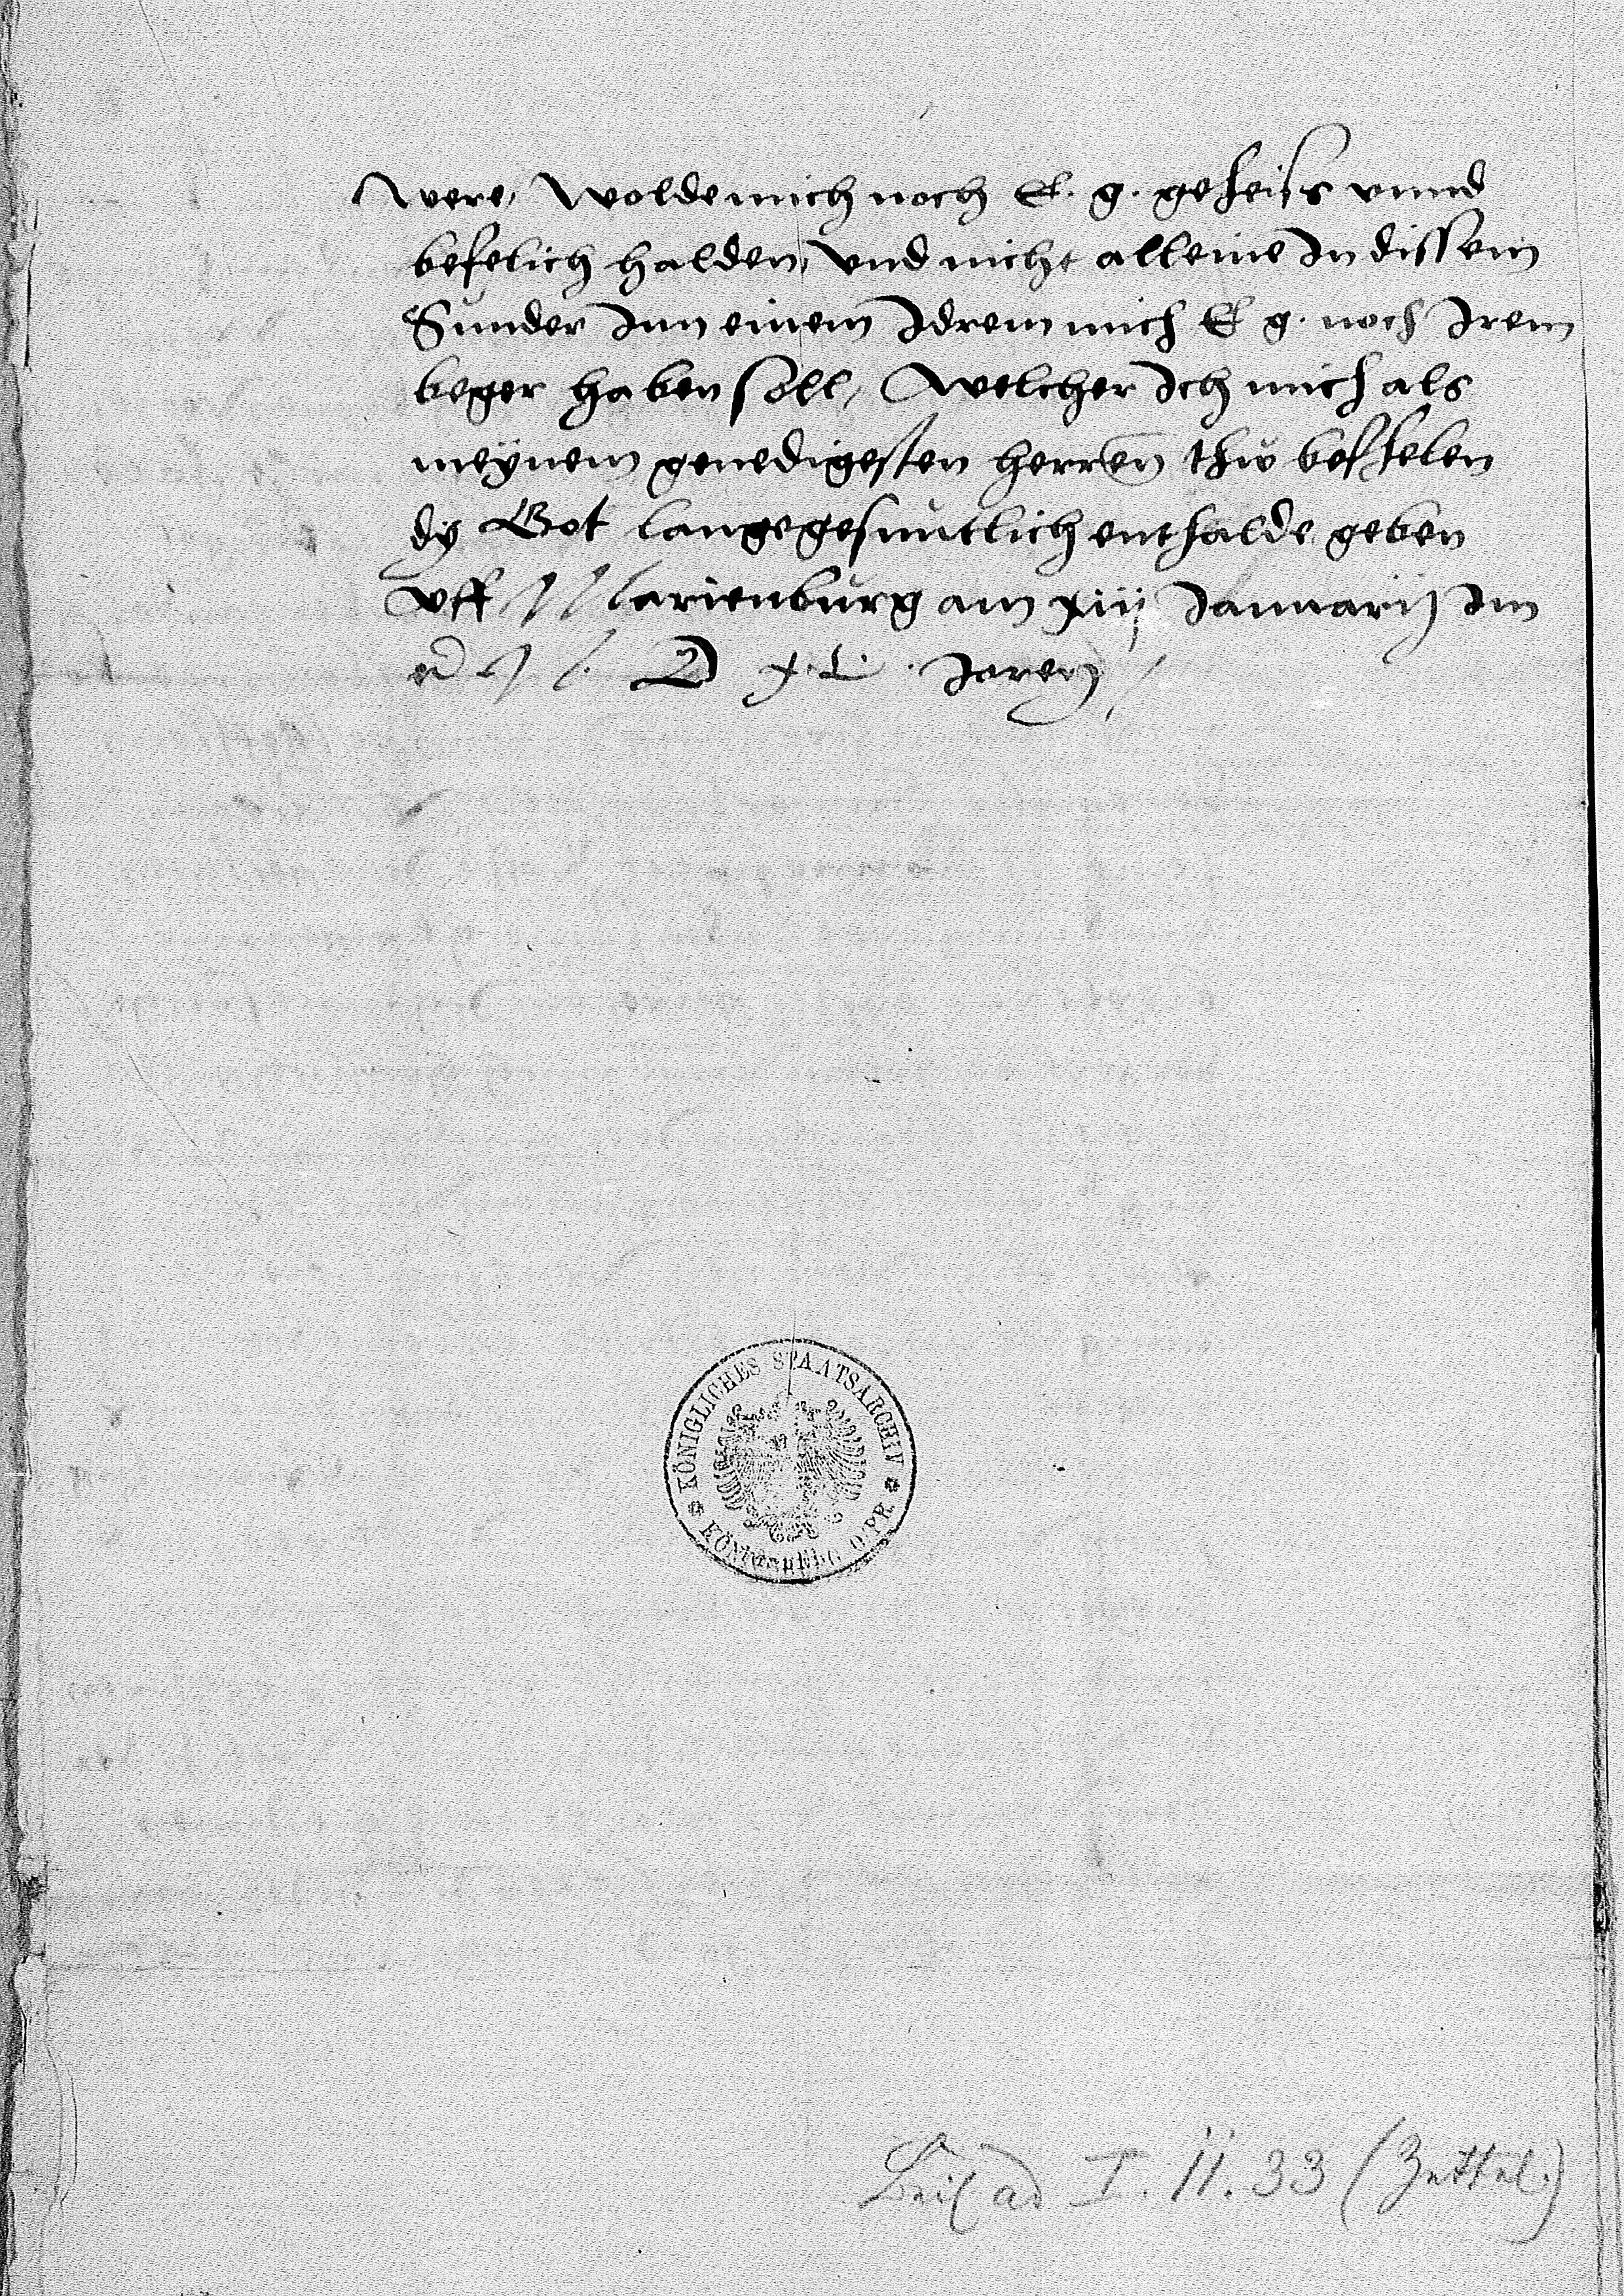 were, wolde mich noch E. g. geheiss vnnd
befelich halden, vnd nicht alleine In dissem
Sunder Inn einem Idrem mich E g. noch Irem
beger haben soll, Welcher Ich mich als
meynem genedigesten herren thw beffelen
dy Got lange gesuntlich enthalde geben
vff Marienburg am xiiij Januarij Im
D XL Jaren
KÖNIGLICHES STAATSARCHIV
KÖNIGSBERG O/PR.
Beil ad I. 11. 33 (Zettel.)